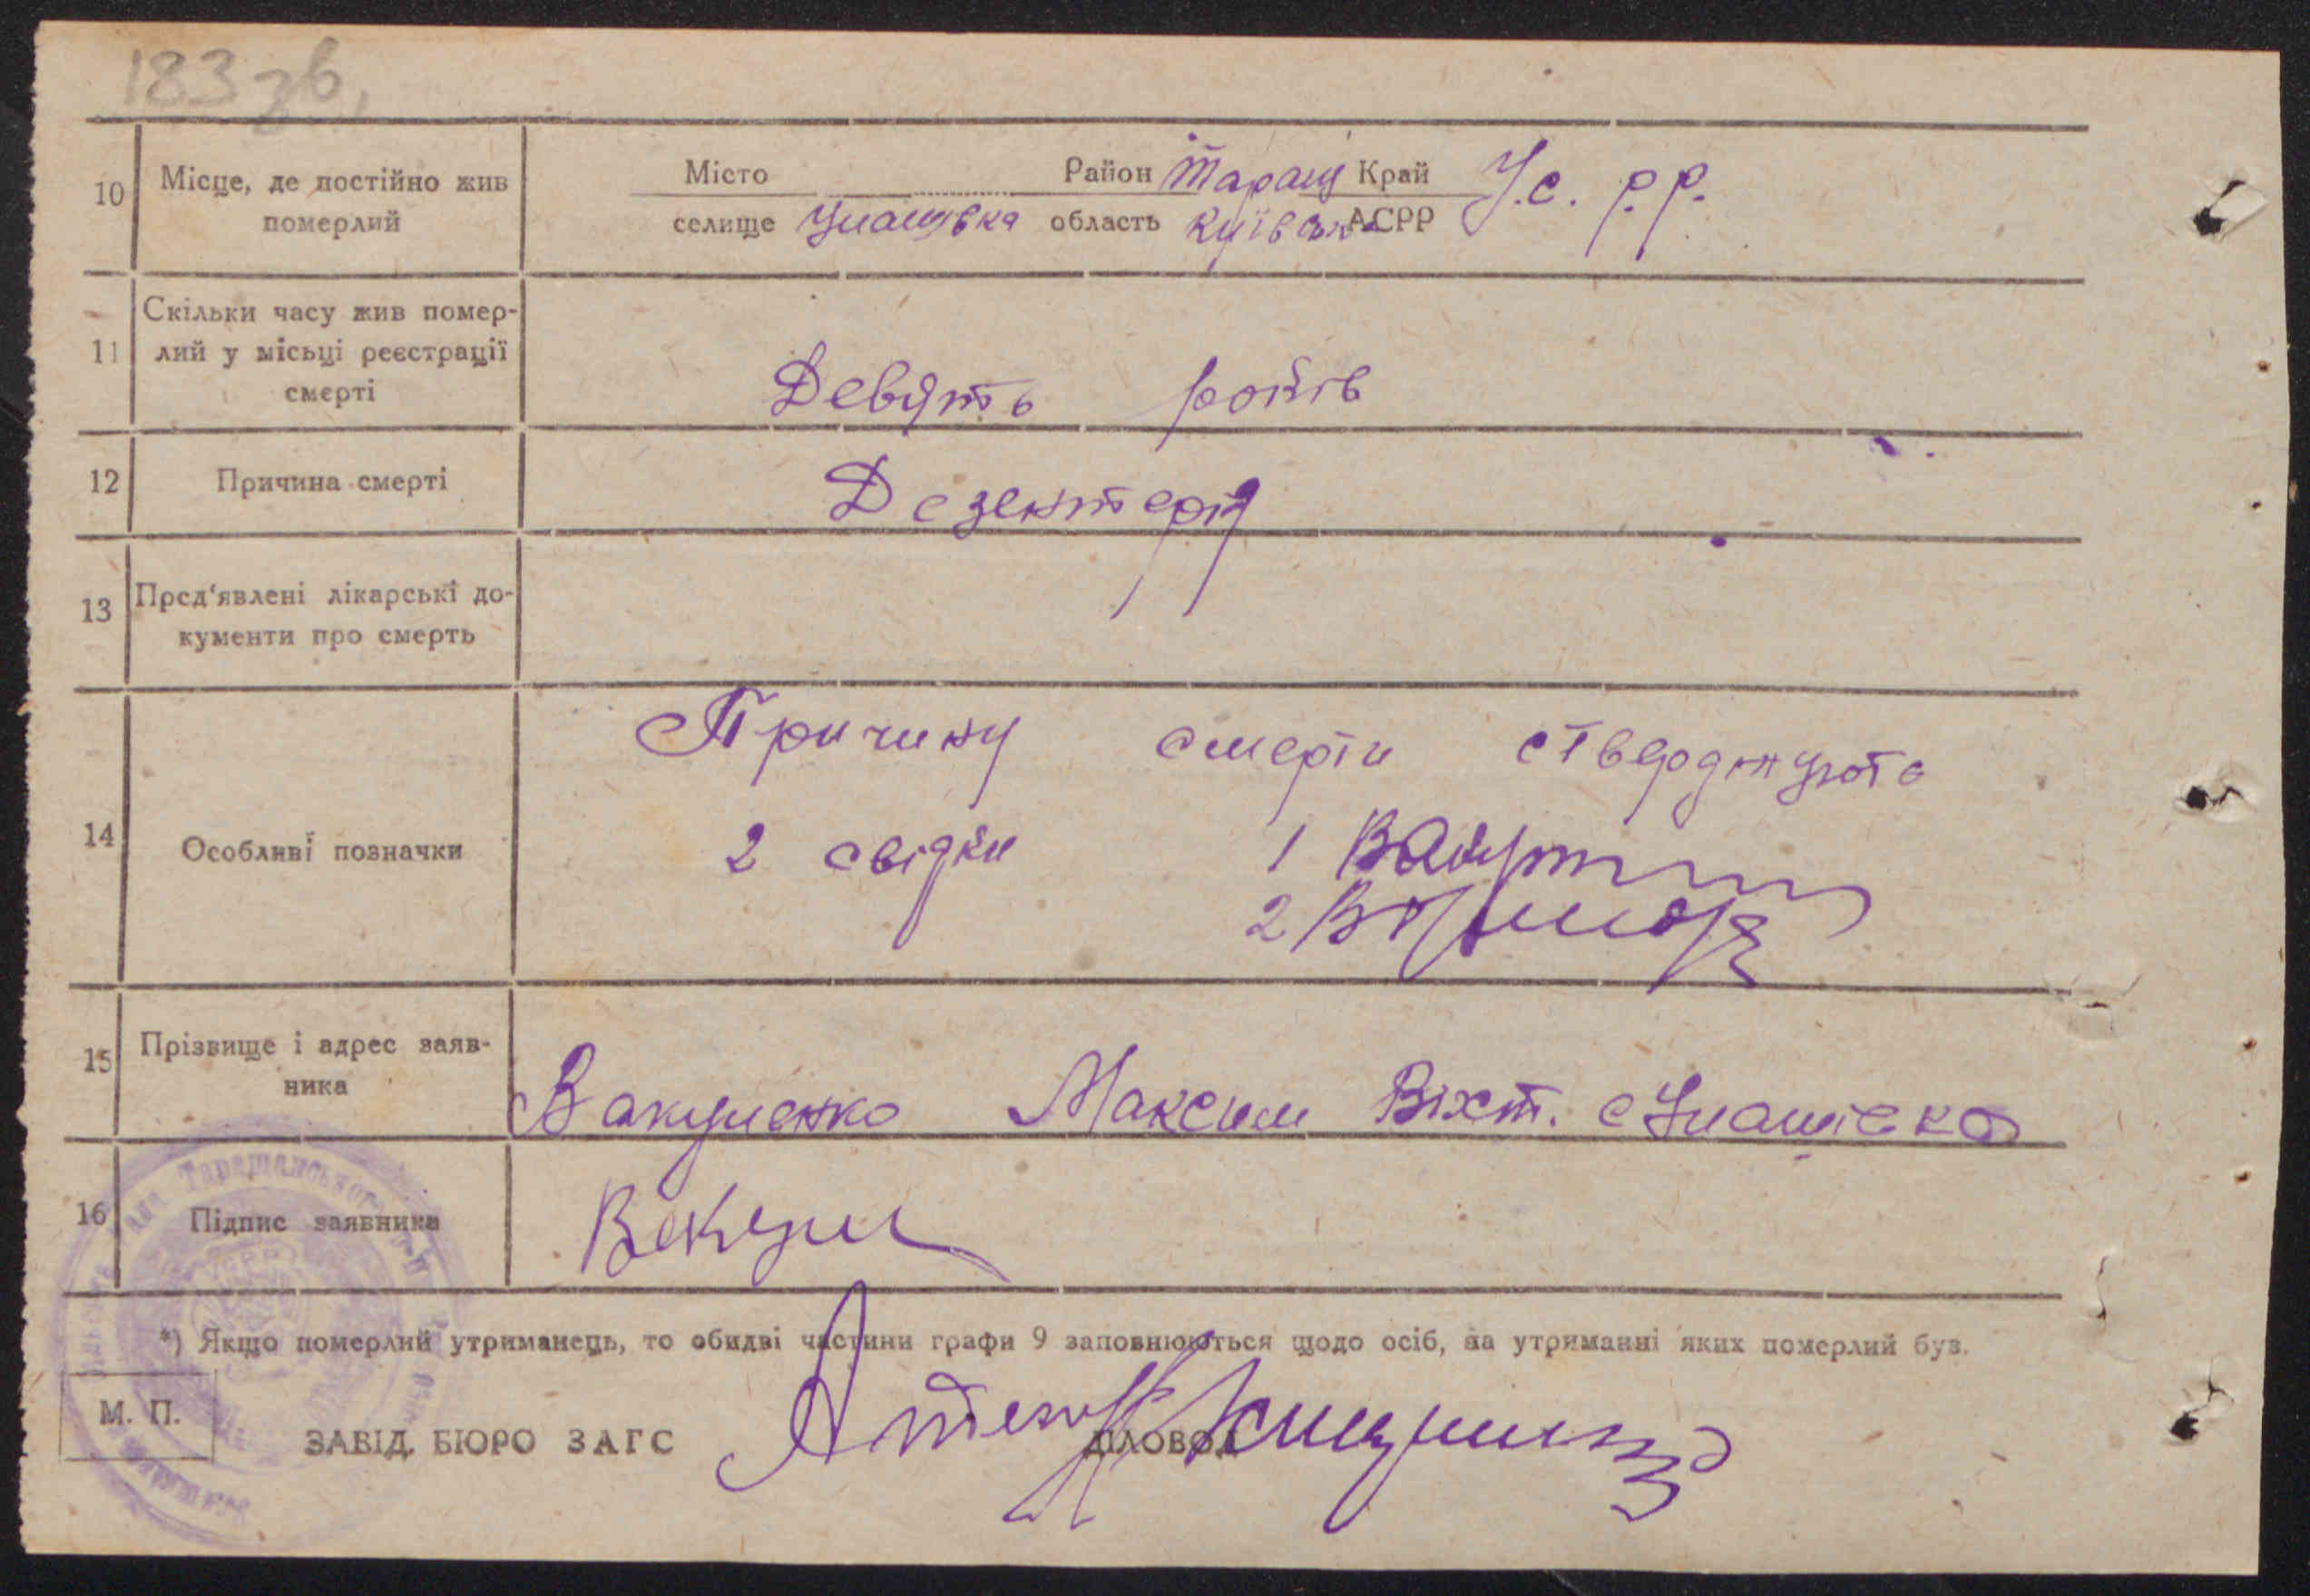 183 зв.
10 Місце, де постійно жив померлий
Місто Район Таращ Край У.С.Р.Р.
селище Улашівка область Київська АСРР
11 Скільки часу жив помер-
лий у місьці реєстрації
смерті
Девять років
12 Причина смерті Дезентерія
13 Пред'явлені лікарські до-
кументи про смерть
Причину смерти стверджують
14 Особливі позначки 2 свідки 1
2
15 Прізвище і адрес заяв-
ника
Вакуленко Максим Віхт. с Улашівка
16 Підпис заявника Вакул
*) Якщо померлий утриманець, то обидві частини графи 9 заповнюються щодо осіб, на утриманні яких померлий був.
М. П.
ЗАВІД. БЮРО ЗАГС ДІЛОВОД